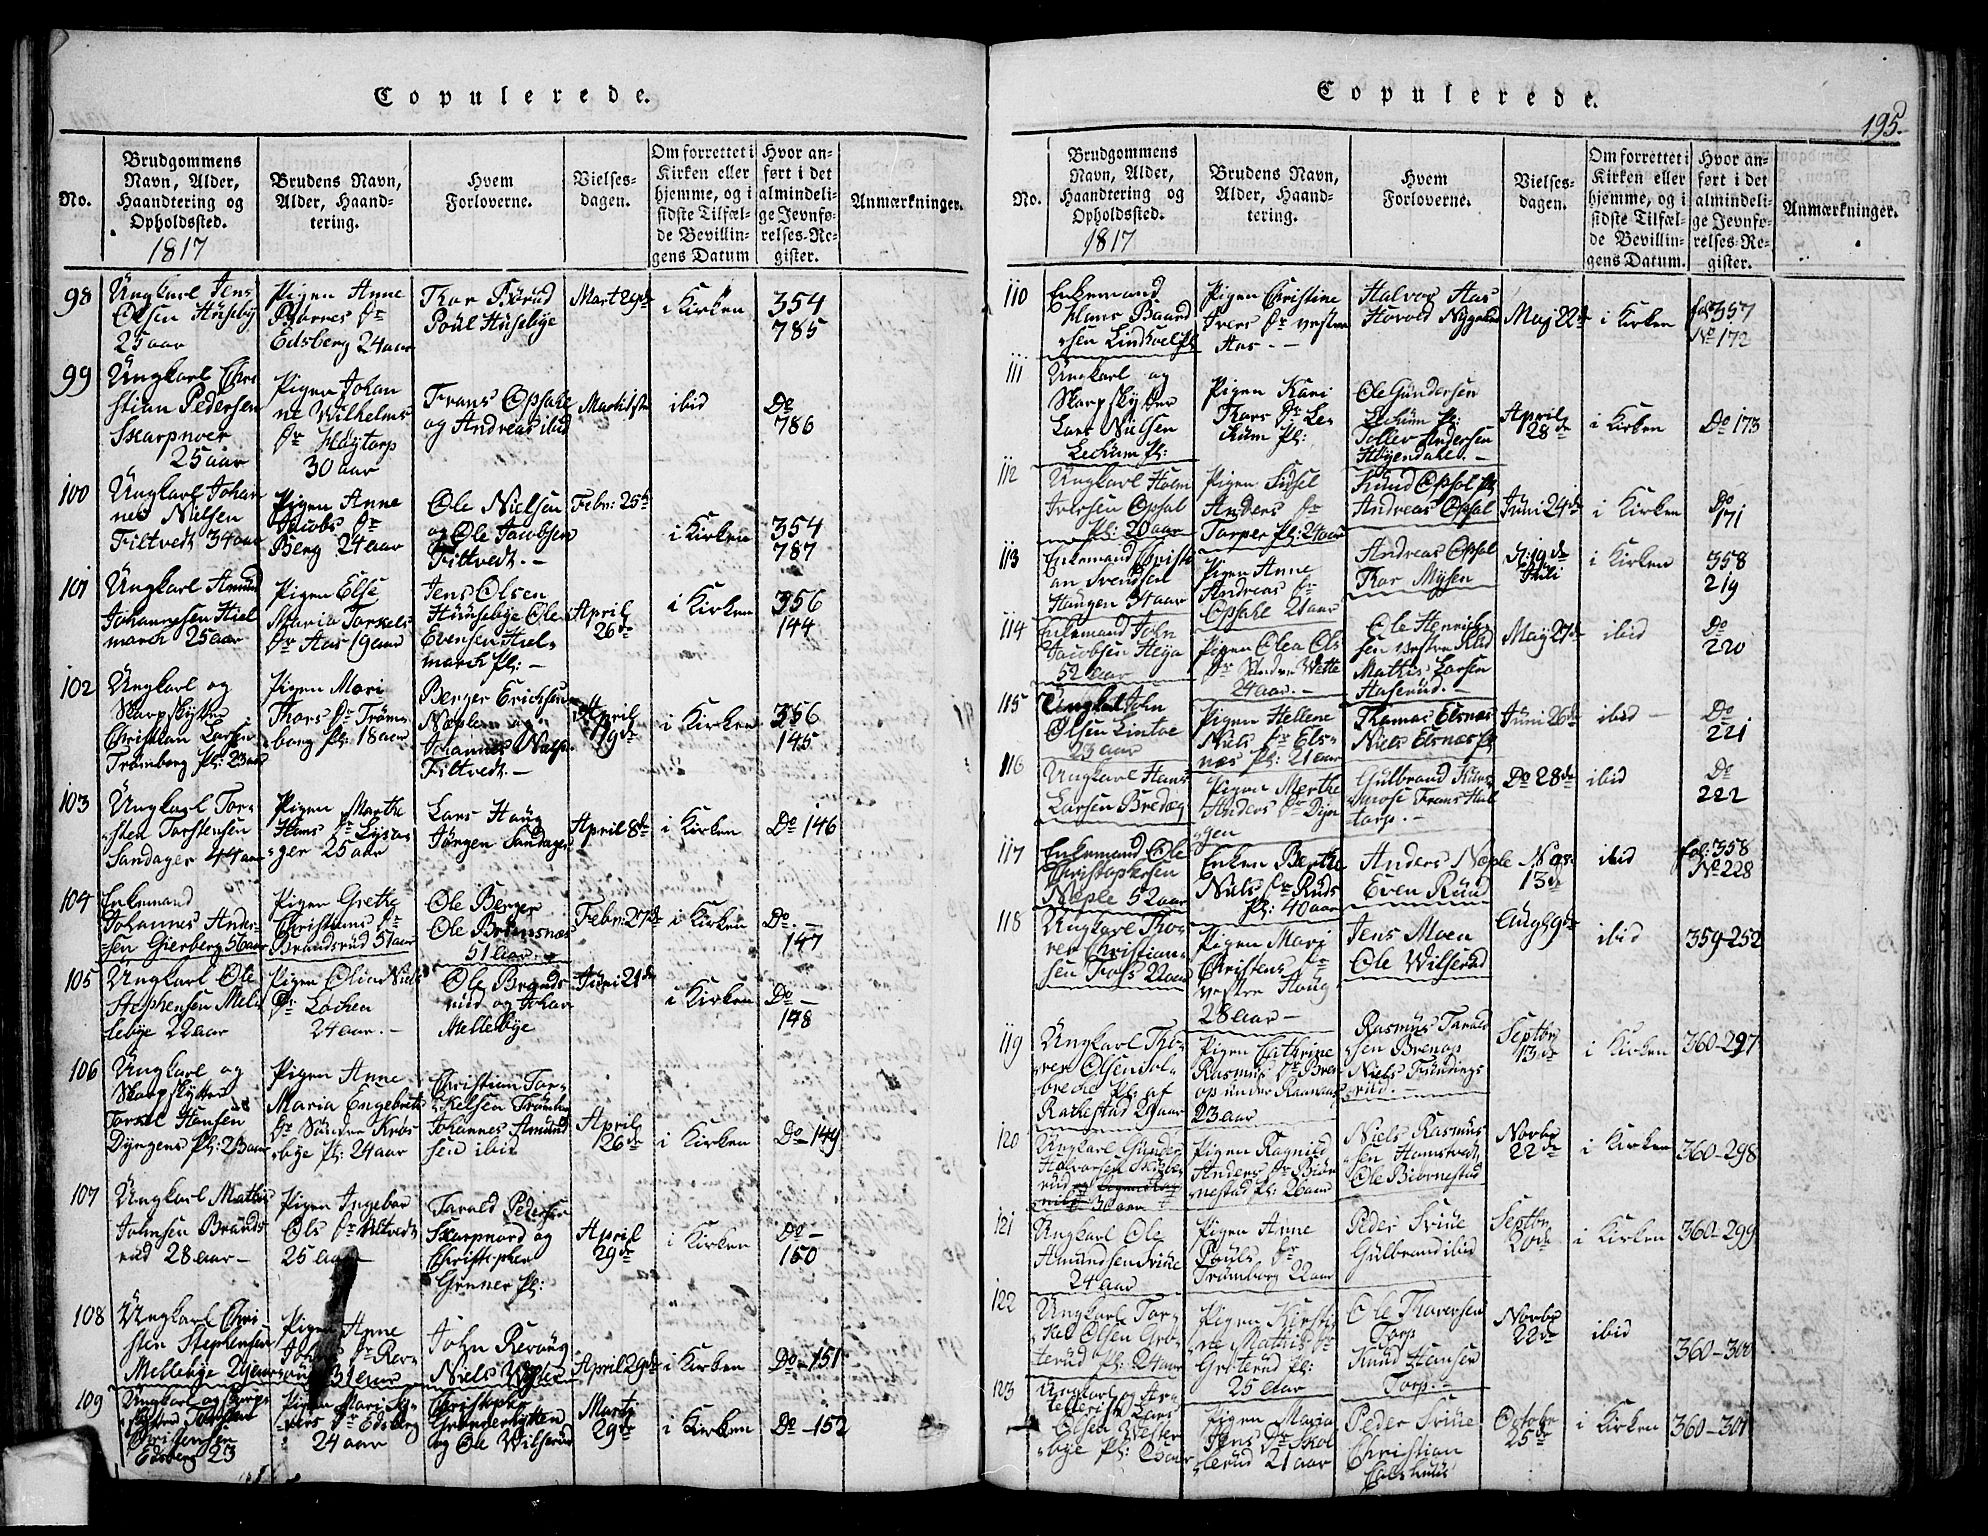 Copulerede.
No.
Brudgommens
Navn, Alder,
Haandtering og
Opholdssted.
1817
Brudens Navn,
Alder, Haand-
tering.
Hvem
Forloverne.
Vielses-
dagen.
Om forrettet i
Kirken eller
hjemme, og i
sidste Tilfæl-
de Bevillin-
gens Datum
Hvor an-
ført i det
almindeli-
ge Jevnfø-
relses-Re-
gister.
Anmærkninger.
98
Ungkarl Jens
Olsen Huseby
25 aar
Pigen Anne
Biørnes Dr
Edsberg 24 aar
Thor Bærud
Poul Husebye
Mart 29de
i Kirken
354
785
99
Ungkarl Chri
stian Pedersen
Skarpnoer
25 aar
Pigen Johan
ne Wilhelms
Dr Høytorp
30 aar
Frans Opsahl
og Andreas ibid
Martii 1ste
ibid
Do
786
100
Ungkarl Johan
nes Nielsen
Filtvedt 34 aar
Pigen Anne
Jacobs Dr
Berg 24 aar
Ole Nielsen
og Ole Jacobsen
Filtvedt. –
Febr: 25de
i Kirken
354
787
101
Ungkarl Amund
Johannesen Hiel
march 25 aar
Pigen Else
Maria Torkels
Dr Aas 19 aar
Jens Olsen
Huusebye Ole
Evensen Hiel-
march Pl: –
April
26de
i Kirken
356
144
102
Ungkarl og
Skarpskytter
Christian Larsen
Tromborg Pl: 23 aar
Pigen Mari
Thors Dr Tröm-
borg Pl: 18 aar
Berger Erichsen
Næple og
Johannes
Filtvedt. –
April
19de
i Kirken
356
145
103
Ungkarl Tor-
sten Torstensen
Sandager 44 aar
Pigen Marthe
Hans Dr Lysta-
ger 25 aar
Lars Haug
Jörgen Sandager
April 8de
i Kirken
Do 146
104
Enkemand
Johannes Ander-
sen Gierberg 56 aar
Pigen Grethe
Christians Dr
Brandsrud 51 aar
Ole Berger
Ole Bramsnæs
51 aar. –
Febr: 27de
i Kirken
Do. –
147
105
Ungkarl Ole
Stephensen Mel
lebye 22 aar
Pigen Olia Niels
Dr Lochen
24 aar. –
Ole Brands
rud og Johan
Mellebye
Juni 21de
i Kirken
Do –
148
106
Ungkarl og
Skarpskytter
Torkel Hansen
Dyrgens Pl: 23 aar
Pigen Anne
Maria Engebrets
Dr Söndre Kros
bye Pl: 24 aar
Christian Tor-
kelsen Trömborg
Johannes Amund
sen ibid
April
26de
i Kirken
Do – 149
107
Ungkarl Mathis
Johnsen Brands
rud 28 aar –
Pigen Ingebor
Ols Dr
25 aar –
Tarald Pedersen
Skarpnord og
Christopher
Gruner Pl:
April
29de
i Kirken
Do –
150
108
Ungkarl Chri-
sten Stephensen
Mellebye 29 aar
Pigen Anne
Johns Dr Rer-
31 aar
John Revoug
Niels
April 29de
i Kirken
Do – 151
109
Ungkarl og Skarp-
Christensen
Edsberg 23
Pigen Mari
Dr Edsberg
24 aar
Christopher
Grønderhytten
og Ole Wilserud
Martii
29de
i Kirken
Do – 152
Copulerede.
195.
No.
Brudgommens
Navn, Alder,
Haandtering og
Opholdssted.
1817
Brudens Navn,
Alder, Haand-
tering.
Hvem
Forloverne.
Vielses-
dagen.
Om forrettet i
Kirken eller
hjemme, og i
sidste Tilfæl-
de Bevillin-
gens Datum.
Hvor an-
ført i det
almindeli-
ge Jevnfø-
relses-Re-
gister.
Anmærkninger.
110
Enkemand
Hans Baard
sen Lindhoel Pl
Pigen Christine
Ivers Dr vestre
Aas. –
Halvor Aas
Harold Nygaard
Maj 22de
i Kirken
fol 357
No 172
111
Ungkarl og
Skarpskytter
Lars Nielsen
Lechum Pl:
Pigen Kari
Thors Dr Le-
chum Pl:
Ole Gundersen
Lechum Pl:
Tollev Andersen
Høyendahl. –
April
28de
i Kirken
Do 173
112
Ungkarl Holm
Iversen Opsal
Pl: 20 aar
Pigen Sidsel
Anders Dr
Torper Pl: 24 aar
Knud Opsal Pl
Andreas Opsal
Juni 24de
i Kirken
Do
171
113
Enkemand Christi
an Svendsen
Haugen 34 aar
Pigen Anne
Andreas Dr
Opsahl 21 aar
Andreas Opsal
Thor Mysen
19de
Juli
i Kirken
358
219
114
Enkemand John
Jacobsen Heya
52 aar
Pigen Olea Ols
Dr Nedre Wette
24 aar. –
Ole Henrich-
sen vestre Klud
Mathis Larsen
Haserud. –
May 27de
ibid
Do
220
115
Ungkarl John
Olsen Lintoe
23 aar
Pigen Hellene
Niels Dr Els-
næs Pl: 21 aar
Thomas Elsnæs
Niels Elsnæs Pl
Juni 26de
ibid –
Do
221
116
Ungkarl Hans
Larsen Bredæg
Pigen Marthe
Anders Dr Dyn
gen
Gulbrand Kan-
Frans Hal
torp. –
Do 28de
ibid
Do
222
117
Enkemand Ole
Christophersen
Næple 52 aar
Enken Berthe
Niels Dr Ruds
Pl: 40 aar
Anders Næple
Even Ruud
Nov:
13de
ibid
fol: 358
No 228
118
Ungkarl Tho-
rer Christian-
sen Foss 22 aar
Pigen Mari
Christens Dr
vestre Haug
28 aar –
Jens Moen
Ole Wilserud
Aug 29de
ibid
359–252
119
Ungkarl Tho-
rer Olsen Dol-
Pl: af
Rackestad 29 aar
Pigen Cathrine
Rasmus Dr Bren
op under Raanaas
23 aar
Rasmus Tarald
sen Brenop
Niels Trundings
rud.
Septbr
13de
i Kirken
360–297
120
Ungkarl Gunder
Halvorsen
rud
30 aar
Pigen Ragnild
Anders Dr Biør
nestad Pl: 26 aar
Niels Rasmus
sen Hamstvedt
Ole Biørnestad
Novbr
22de
i Kirken
360–298
121
Ungkarl Ole
Amundsen Sviue
24 aar
Pigen Anne
Pouls Dr
Trömborg 22 aar
Peder Sviue
Gulbrand ibid
Septbr
20de
i Kirken
360–299
122
Ungkarl Tor-
kel Olsen Gro-
terud Pl: 24 aar
Pigen Kirsti-
ne Mathis Dr
Groterud Pl:
25 aar
Ole Thoresen
Torp
Knud Hansen
Torp. –
Novbr
22de
ibid
360–300
123
Ungkarl og Ar-
tellerist Lars
Olsen Wester
bye Pl: 23 aar
Pigen Maria
Jens Dr Skol
lerud 21 aar
Peder Sviue
Christian
October
25de
i Kirken
360–301